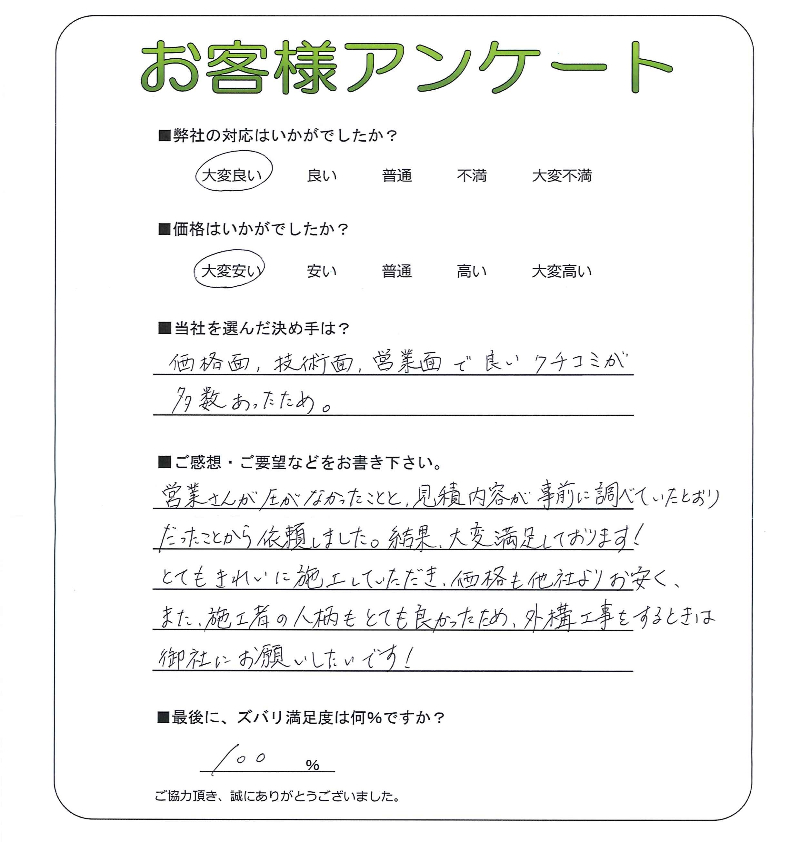 お客様アンケート
■弊社の対応はいかがでしたか？
大変良い 良い 普通 不満 大変不満
■価格はいかがでしたか？
大変安い 安い 普通 高い 大変高い
■当社を選んだ決め手は？
価格面，技術面，営業面で良いクチコミが
多数あったため。
■ご感想・ご要望などをお書き下さい。
営業さんが圧がなかったことと，見積内容が事前に調べていたとおり
だったことから依頼しました。結果、大変満足しております！
とてもきれいに施工していただき、価格も他社よりお安く、
また、施工者の人柄もとても良かったため、外構工事をするときは
御社にお願いしたいです！
■最後に、ズバリ満足度は何％ですか？
100 %
ご協力頂き、誠にありがとうございました。